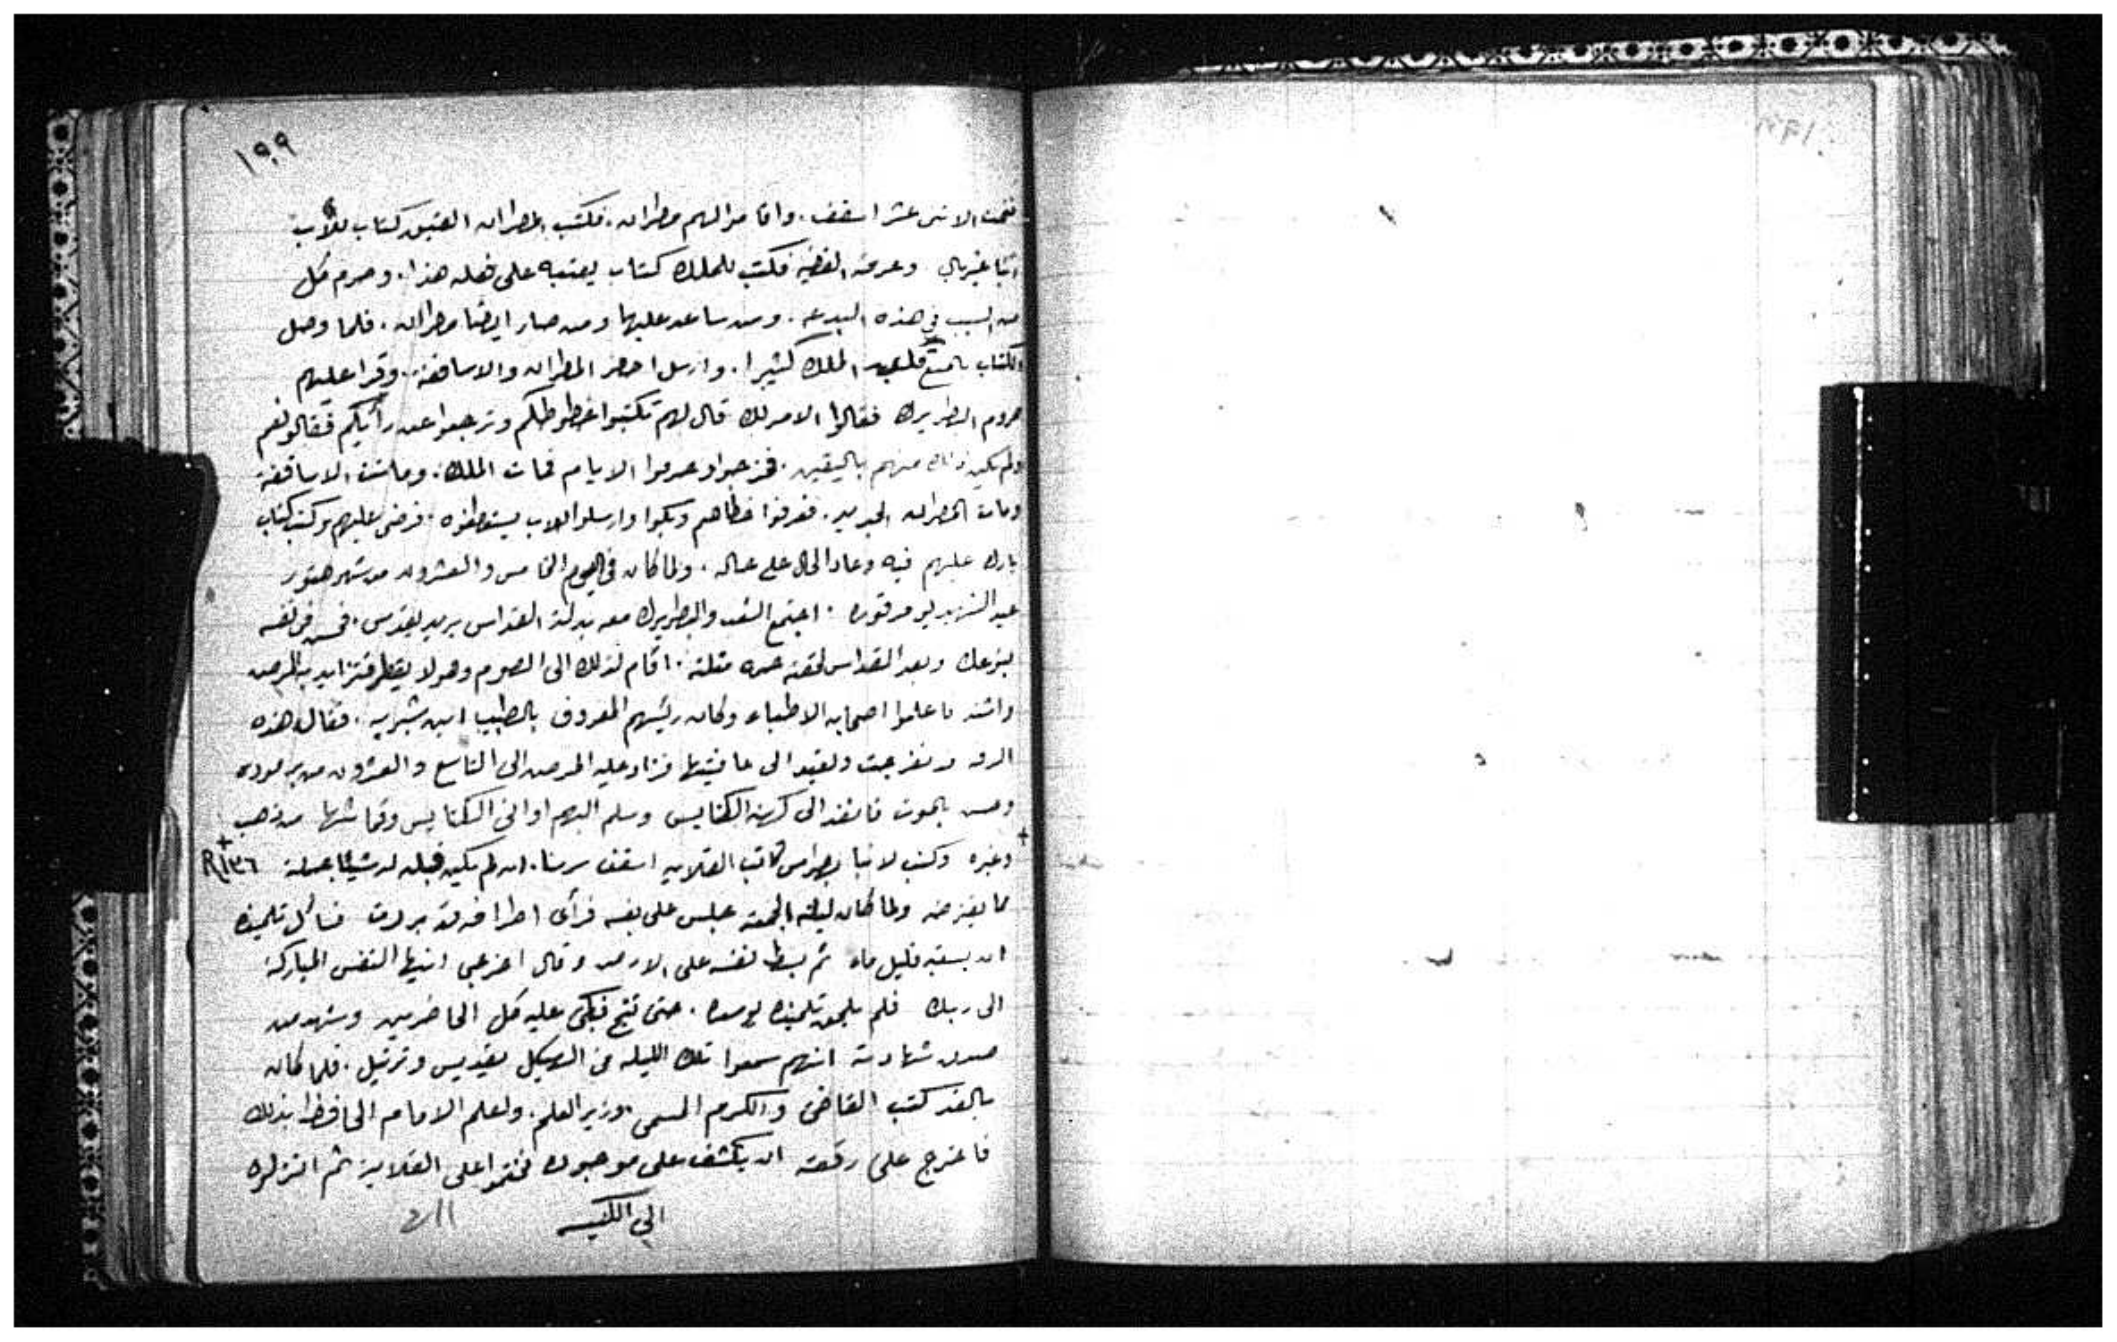 ١٩٩
فتمت الاثنى عشر اسقف. واقاموا لهم مطران. فكتب المطران العتيق كتاب للأب
انبا غبريال وعرفه القضيه فكتب للملك كتاب يعتبه على فعله هذا. وحرم كل
من السبب في هذه البدعه. ومن ساعد عليها ومن صار ايضا مطران. فلما وصل
الكتاب بالمنع الملك كثيرا. وارسل احضر المطران والاساقفة. وقرا عليهم
حروم البطريرك فقالوا الامر لك قال لهم تكتبوا خطوطكم وترجعوا عن رأيكم فقالو نعم
ولم يكن ذلك منهم باليقين. فخرجوا وعدموا الايام فمات الملك. وماتت الاساقفة
ومات المطران الجديد. فعرفوا خطاهم وبكوا وارسلوا للاب يستعطفوه. فرضى عليهم وكتب كتاب
بارك عليهم فيه وعاد الحال على حاله. ولما كان في اليوم الخامس والعشرون من شهر هتور
عيد الشهيد بو مرقوره. اجتمع الشعب والبطريرك معه بدلة القداس يريد يقدس. فحس في نفسه
بتوعك وبعد القداس لحقته حمه مقلة. اقام كذلك الى الصوم وهو لا يفطر فتزايد به المرض
واشتد فاعلموا اصحابه الاطباء وكان رئيسهم المعروف بالطبيب ابن شبريه. فقال هذه
الروه قد نفرجت وتعيد الى عافيتها فزاد عليه المرض الى التاسع والعشرون من برموده
وحس بالموت فانفذ الى كهنة الكنايس وسلم اليهم اوانى الكنايس وقماشها من ذهب
وغيره وكتب لانبا بطرس كاتب القلايه اسقف سرسنا. ان لم يكن قبله له شيئا جملة R ١٣٦
مما يفترضه ولما كان ليلة الجمعة جلس على نفسه فرأى اطرافه قد بردت فسأل تلميذه
ان يسقيه قليل ماء ثم بسط نفسه على الارض وقال اخرجى ايتها النفس المباركة
الى ربك فلم يلحق تلميذه يوسده. حتى تنيح فبكى عليه كل الحاضرين وشهد من
صدق شهادته انهم سمعوا تلك الليله في الهيكل تقديس وترتيل. فلما كان
بالغد كتب القاضى والكرم المسمى وزير العلم. ولعلم الامام الحافظ بذلك
فاخرج على رقعته ان يكشف على موجبوده فختموا على القلاية ثم انزلوه
الى الكنيسه